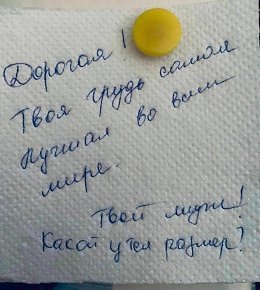 Дорогая!
Твоя грудь самая
лучшая во всем
мире.
Твой муж!
Какой у тея размер?